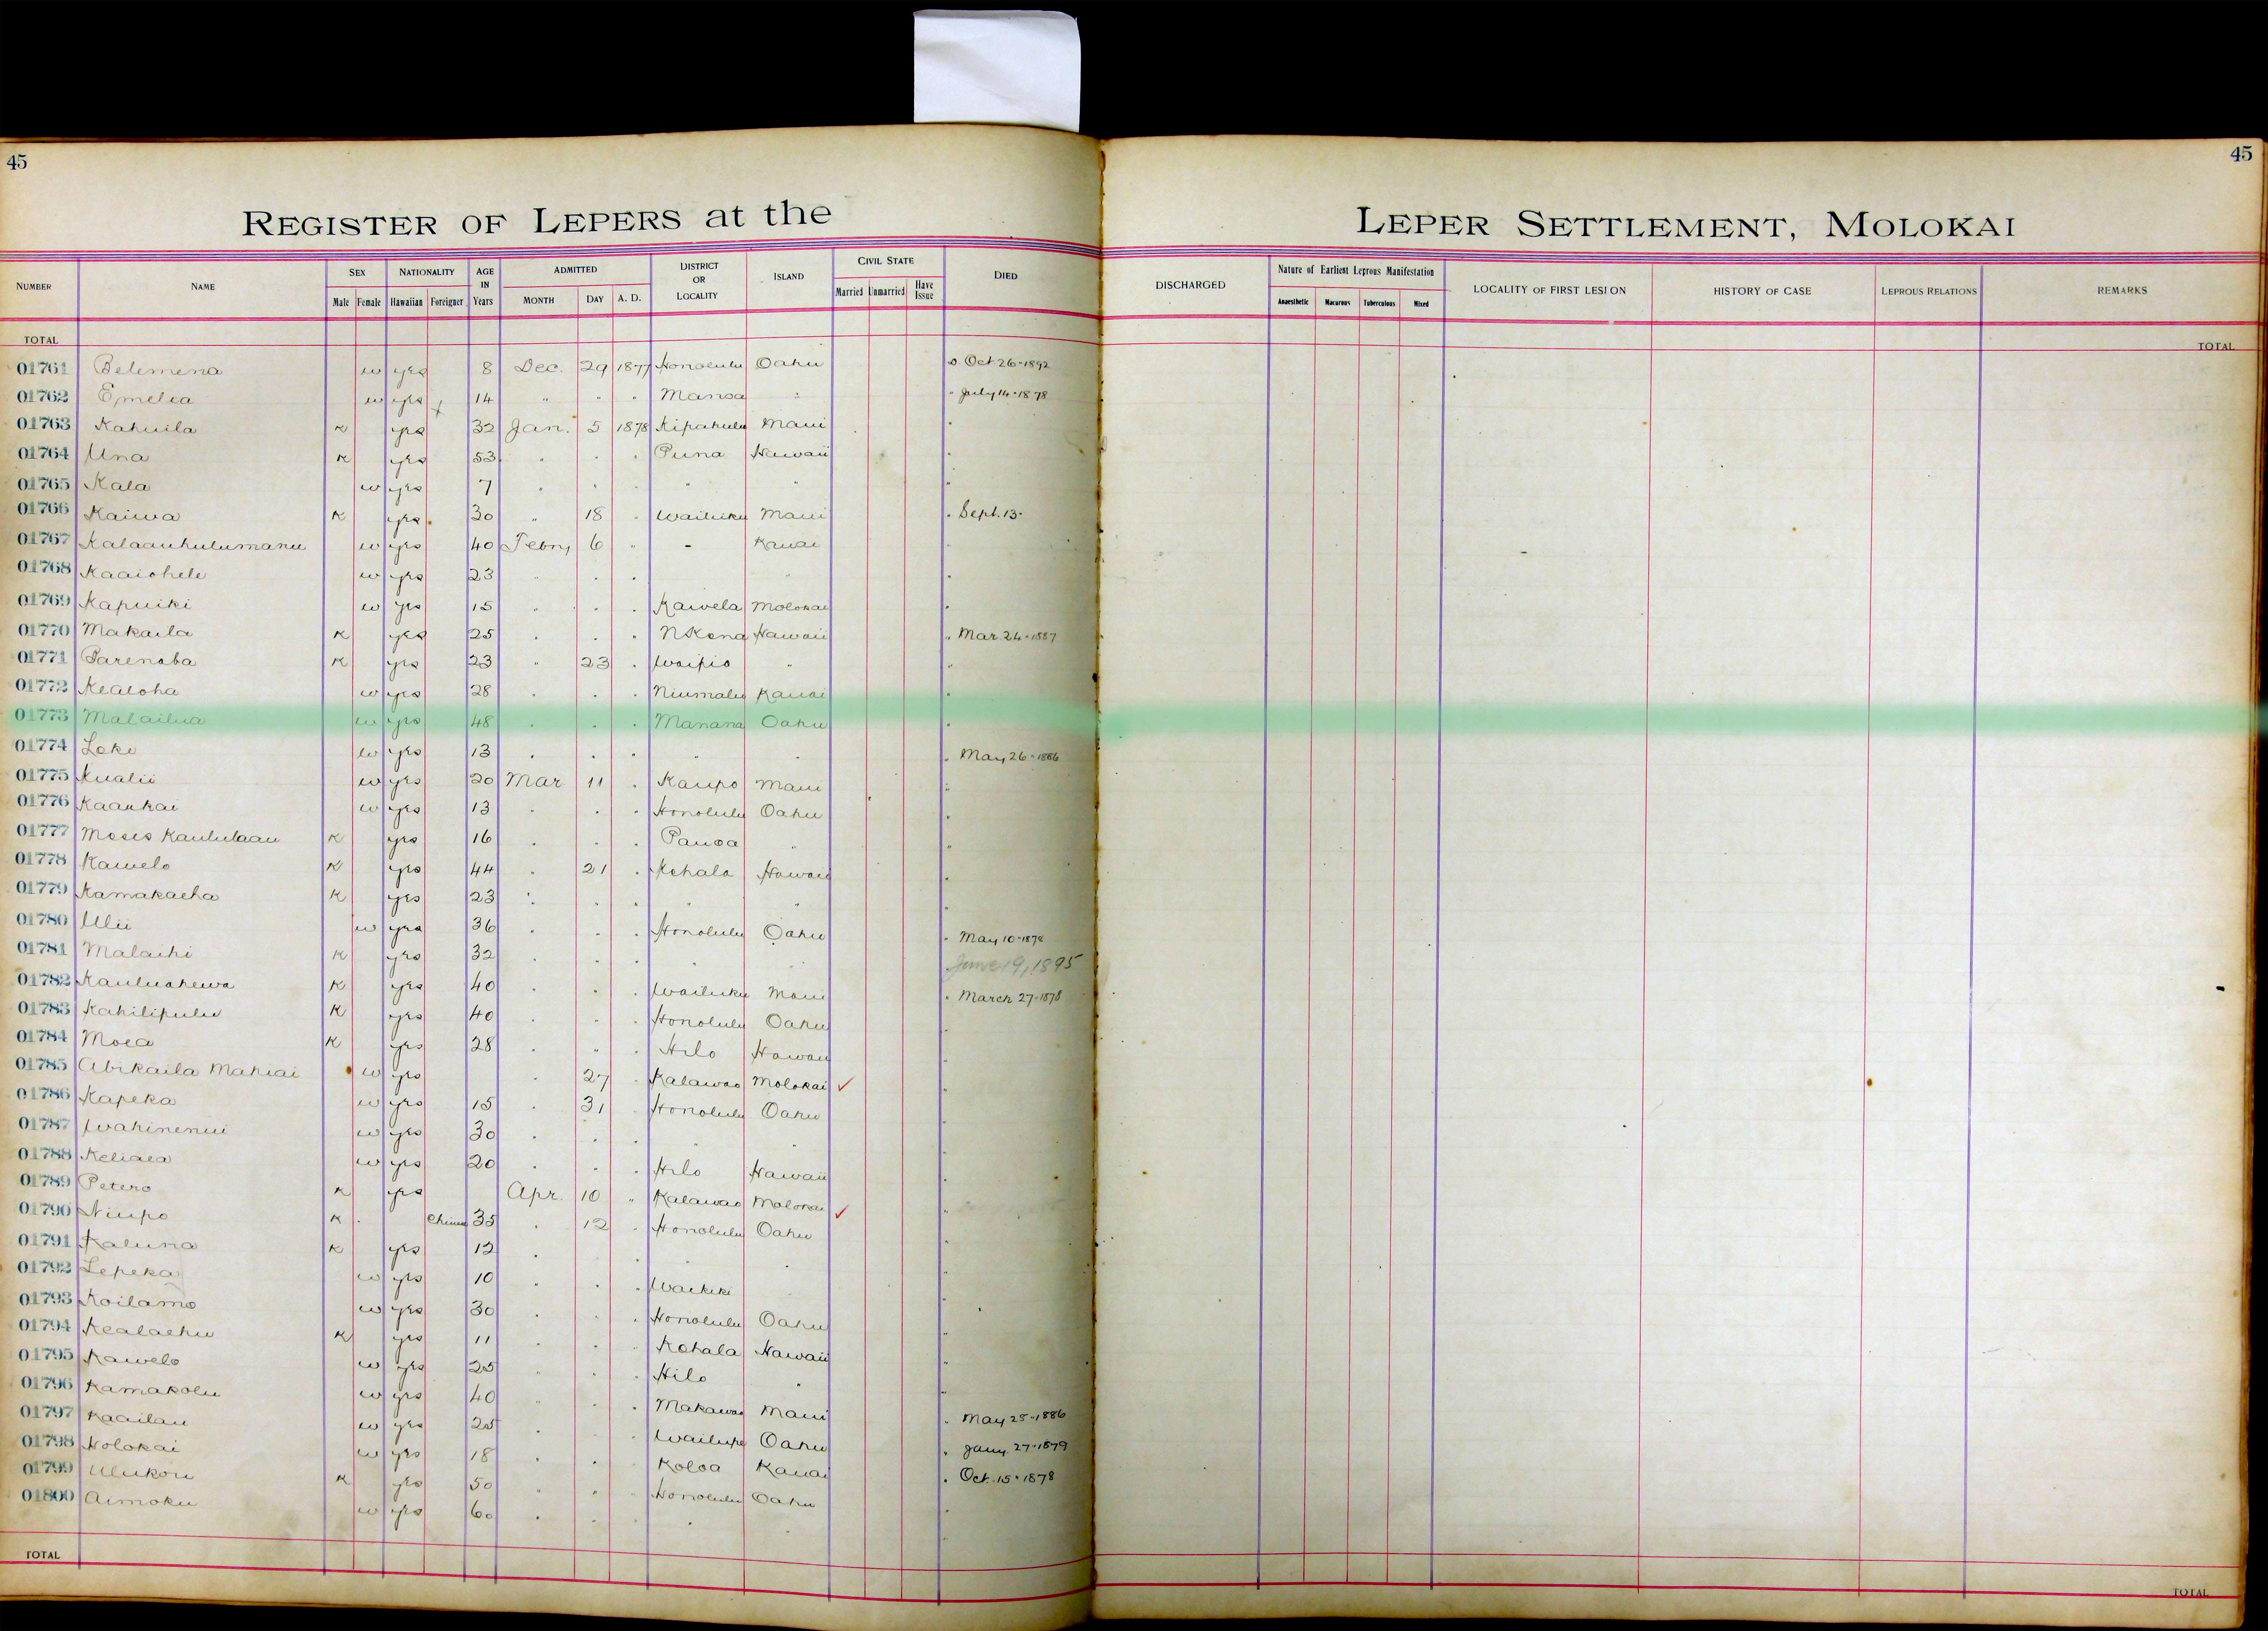 45 45
REGISTER OF LEPERS at the LEPER SETTLEMENT, MOLOKAI
NUMBER NAME SEX NATIONALITY AGE IN Years ADMITTED DISTRICT OR LOCALITY ISLAND CIVIL STATE DIED DISCHARGED Nature of Earliest Leprous Manifestation LOCALITY OF FIRST LESION HISTORY OF CASE LEPROUS RELATIONS REMARKS
Male Female Hawaiian Foreigner MONTH DAY A. D. Married Unmarried Have Issue Anaesthetic Macurous Tuberculous Mixed
TOTAL TOTAL
01761 Belemena w yes 8 Dec. 29 1877 Honolulu Oahu D. Oct 26-1892
01762 Emelia w yes 14 " " " Manoa " " July 14-1878
01763 Kahuila K yes 32 Jan. 5 1878 Kipahulu Maui
01764 Una K yes 53 Puna Hawaii
01765 Kala w yes 7 " "
01766 Kaiwa K yes 30 " 18 Wailuku Maui " Sept. 13.
01767 Kalaauhulumanu w yes 40 Febry 6 " - Kauai
01768 Kaaiohele w yes 23 "
01769 Kapuiki w yes 15 " Kawela Molokai
01770 Makaila K yes 25 N Kona Hawaii " Mar 24-1887
01771 Parenaba K yes 23 " 23 Waipio "
01772 Kealoha w yes 28 Niumalu Kauai
01773 Malailua w yes 48 Manana Oahu
01774 Loke w yes 13 " May 26-1886
01775 Kualii w yes 20 Mar 11 Kaupo Maui
01776 Kaaukai w yes 13 Honolulu Oahu
01777 Moses Kaululaau K yes 16 Pauoa "
01778 Kawelo K yes 44 21 Kohala Hawaii
01779 Kamakaeha K yes 23 " "
01780 Ulii w yes 36 Honolulu Oahu " May 10-1878
01781 Malaihi K yes 32 June 19, 1895
01782 Kauluahewa K yes 40 Wailuku Maui " March 27-1878
01783 Kahilipulu K yes 40 Honolulu Oahu
01784 Moea K yes 28 " Hilo Hawaii
01785 Abikaila Mahiai w yes 27 Kalawao Molokai ✓
01786 Kapeka w yes 15 31 Honolulu Oahu
01787 Wahinenui w yes 30 " "
01788 Keliaea w yes 20 Hilo Hawaii
01789 Petero K yes Apr. 10 " Kalawao Molokai
01790 Niupo K Chinese 35 12 Honolulu Oahu ✓
01791 Kaluna K yes 12
01792 Lepeka w yes 10 Waikiki
01793 Koilamo w yes 30 Honolulu Oahu
01794 Kealaehu K yes 11 Kohala Hawaii
01795 Kawelo w yes 25 Hilo "
01796 Kamakolu w yes 40 Makawao Maui " May 25-1886
01797 Kaailau w yes 25 Wailupe Oahu " Jany. 27-1879
01798 Holokai w yes 18 Koloa Kauai " Oct. 15-1878
01799 Ulukou K yes 50 Honolulu Oahu
01800 Aimoku w yes 60
TOTAL TOTAL